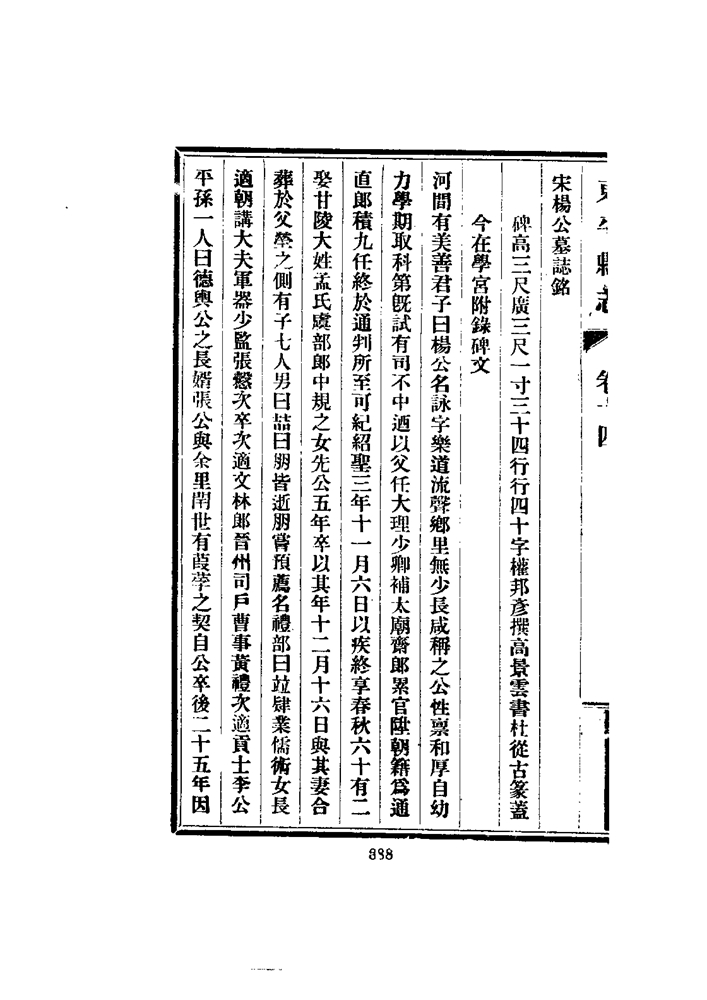 東平縣志 卷十四
宋楊公墓誌銘
碑高三尺廣三尺一寸三十四行行四十字權邦彥撰高景雲書杜從古篆蓋
今在學宮附錄碑文
河間有美善君子曰楊公名詠字樂道流聲鄉里無少長咸稱之公性禀和厚自幼
力學期取科第旣試有司不中迺以父任大理少卿補太廟齋郎累官陞朝籍爲通
直郎積九任終於通判所至可紀紹聖三年十一月六日以疾終享春秋六十有二
娶甘陵大姓孟氏虞部郎中規之女先公五年卒以其年十二月十六日與其妻合
葬於父塋之側有子七人男曰喆曰朋皆逝朋嘗預薦名禮部曰竝肄業儒術女長
適朝講大夫軍器少監張慤次卒次適文林郎晉州司戶曹事黃禮次適貢士李公
平孫一人曰德輿公之長婿張公與余里閈世有葭莩之契自公卒後二十五年因
888